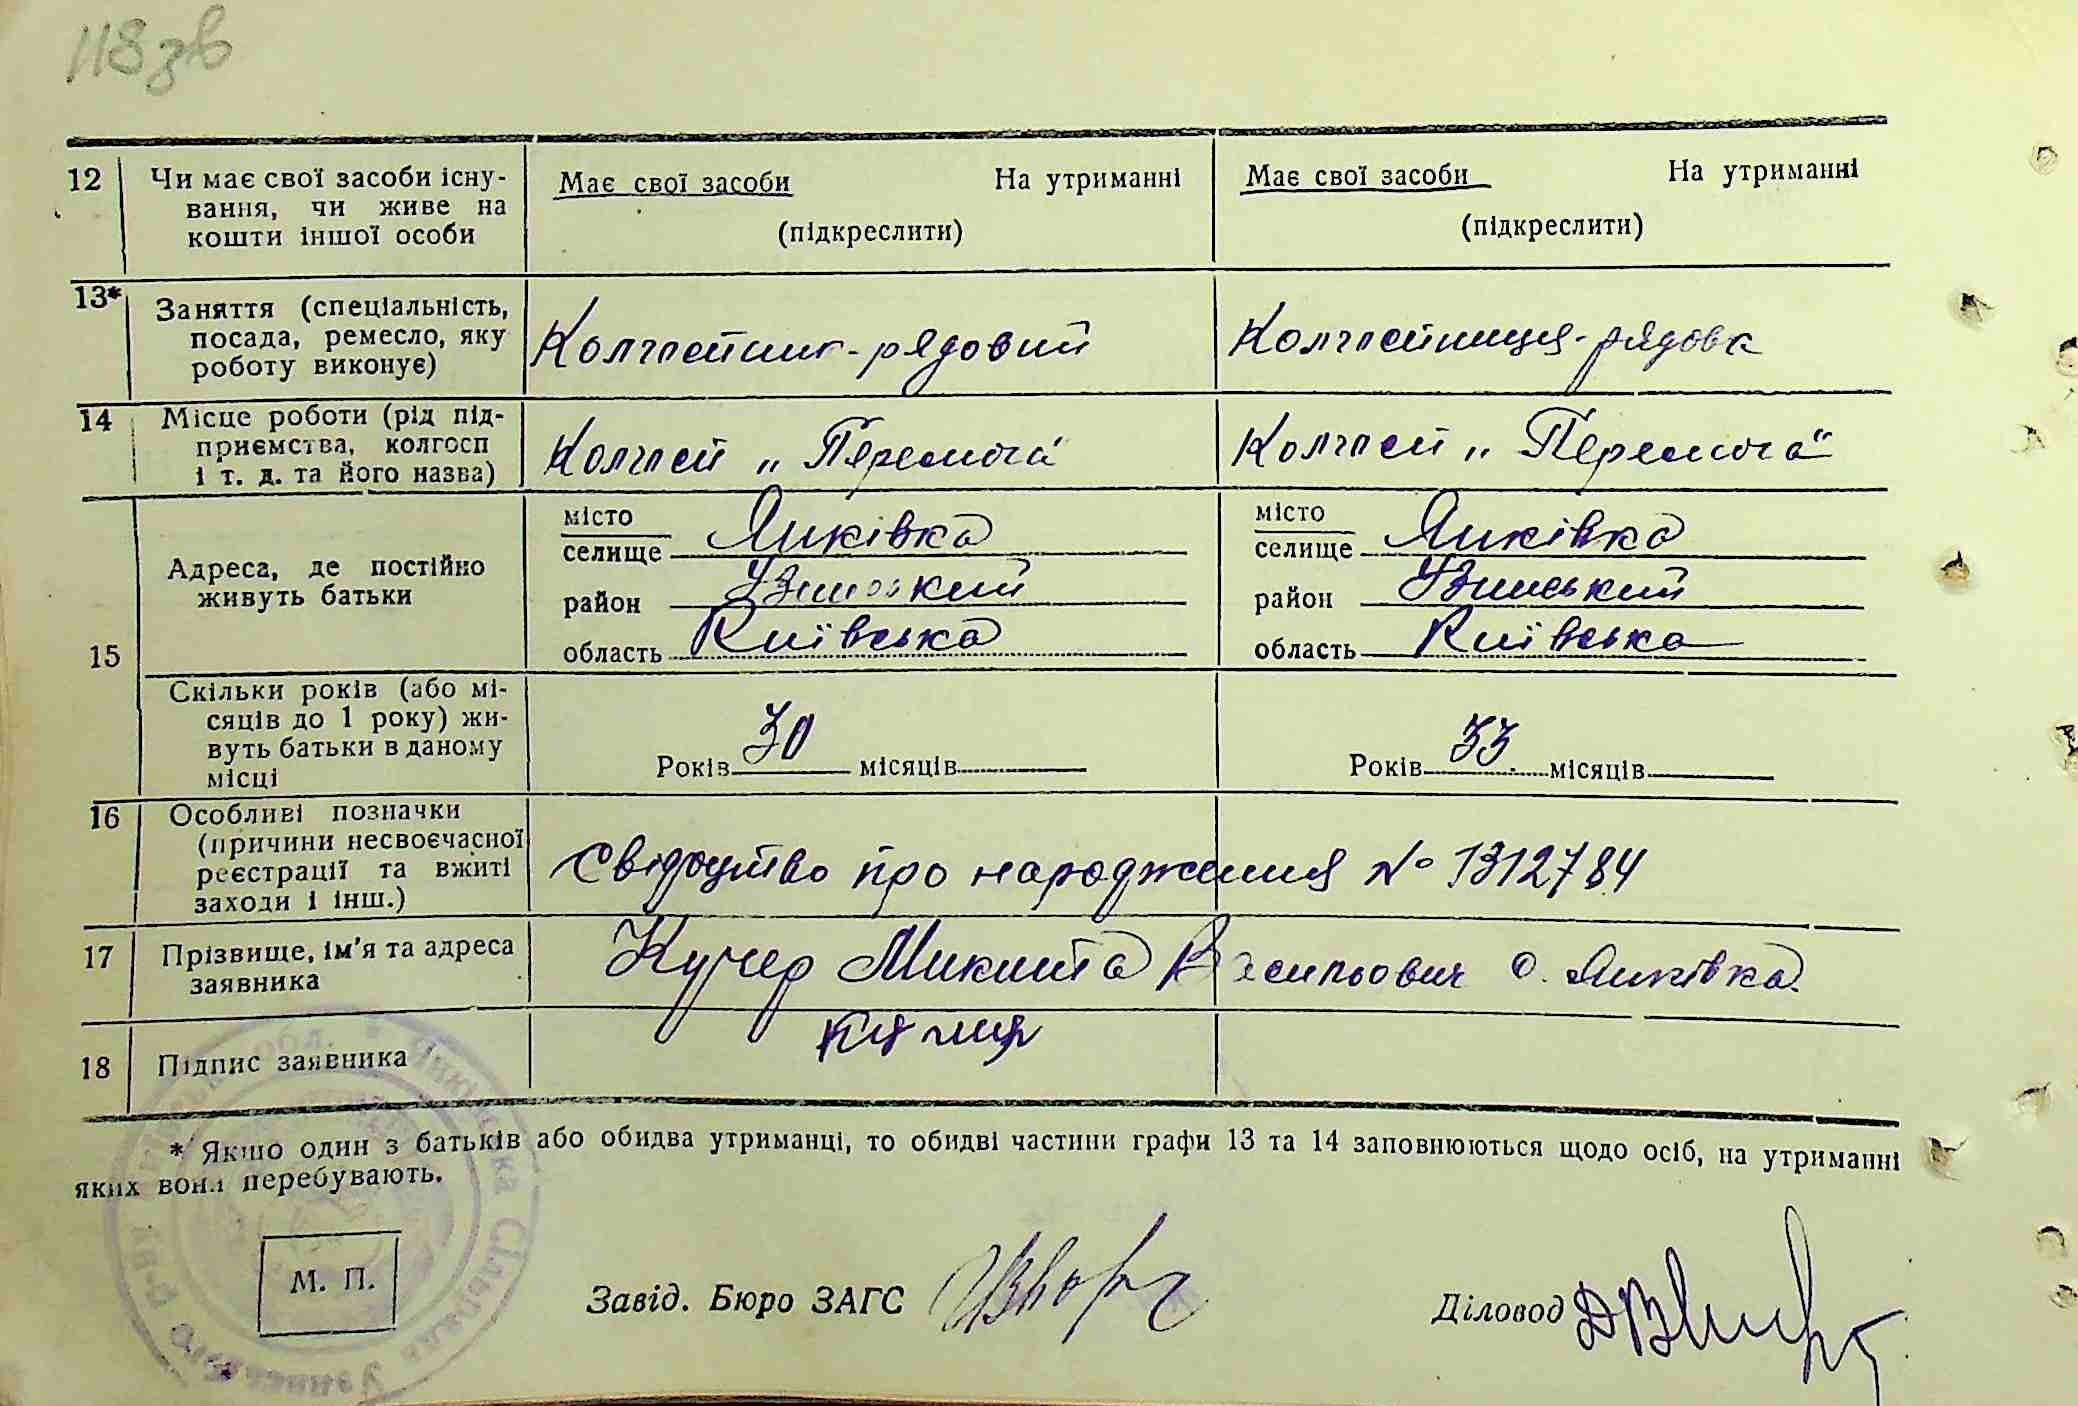 118 зв
12 Чи має свої засоби існу- Має свої засоби На утриманні Має свої засоби На утриманні
вання, чи живе на (підкреслити) (підкреслити)
кошти іншої особи
13* Заняття (спеціальність,
посада, ремесло, яку Колгоспник-рядовий Колгоспниця-рядова
роботу виконує)
14 Місце роботи (рід під-
приємства, колгосп Колгосп „Перемога" Колгосп „Перемога"
і т. д. та його назва)
15 Адреса, де постійно
живуть батьки
місто
селище Яньківка
район Узинський
область Київська
місто
селище Яньківка
район Узинський
область Київська
Скільки років (або мі-
сяців до 1 року) жи-
вуть батьки в даному
місці
Років 30 місяців
Років 33 місяців
16 Особливі позначки
(причини несвоєчасної
реєстрації та вжиті
заходи і інш.)
Свідоцтво про народження № 1312784
17 Прізвище, ім'я та адреса
заявника
Кучер Микита Васильович с. Яньківка
18 Підпис заявника
* Якщо один з батьків або обидва утриманці, то обидві частини графи 13 та 14 заповнюються щодо осіб, на утриманні
яких вони перебувають.
М. П. Завід. Бюро ЗАГС Діловод
обл. Сільрада Узинського р-ну